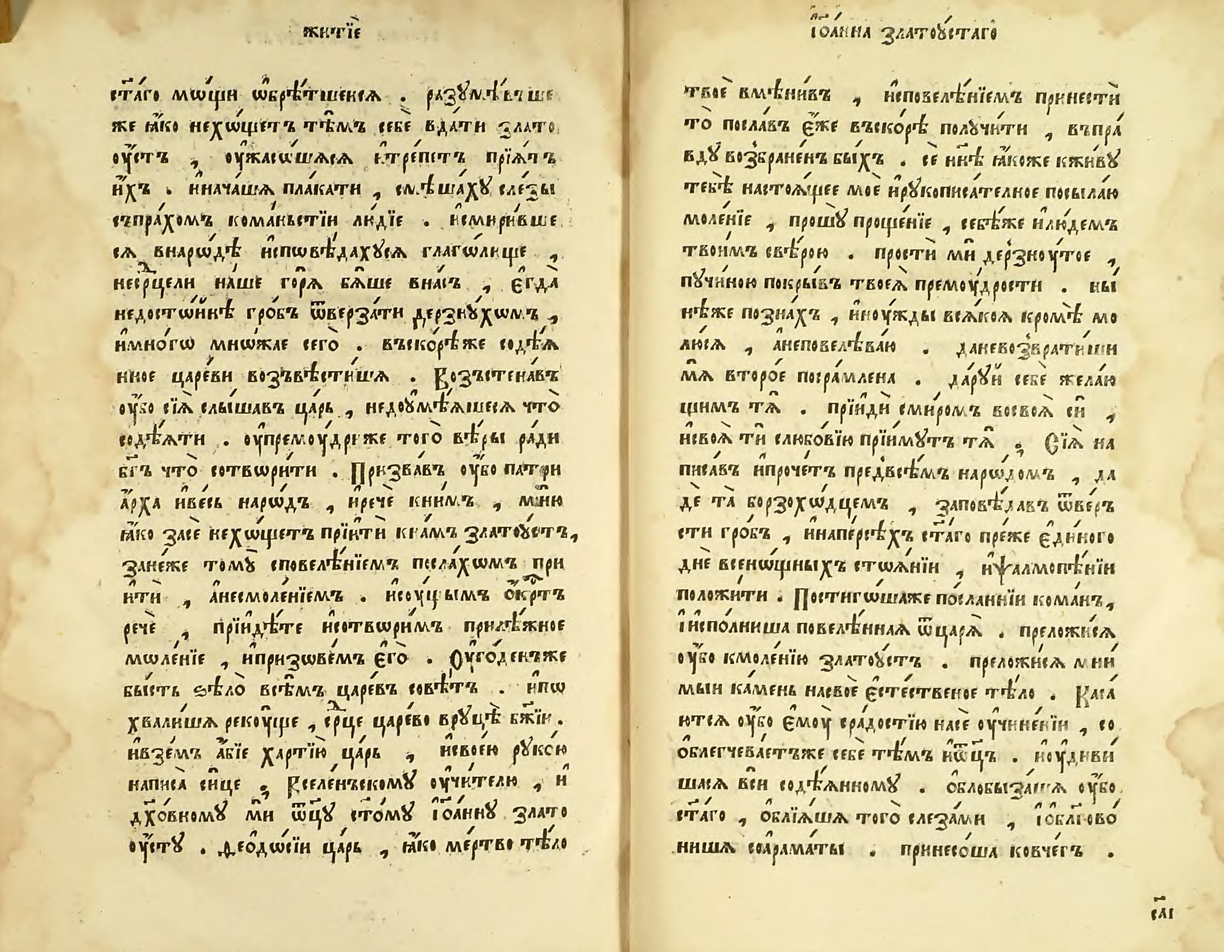 житїе
ст҃аго мѡщи ѡбрѣтшеися . разꙋмѣвъше
же ꙗко нехѡщетъ тѣмъ себѐ вдати злато
оу́стъ , оу҆жасѡшяся итрепетъ прїятъ
и҆хъ . иначашя плакати , смѣшахꙋ слезы
съпрахомъ команьстїи людїе . исмиривше
ся внарѡдѣ исповѣдахꙋся глаголюще ,
несрⷣцели наше горя бяше внасъ , є҆гда
недостѡйнѣ гробъ ѿверзати дерзнꙋхѡмъ ,
имногѡ мнѡжае сего . въскорѣже содѣя
нное цареви возъвѣстишя . Возъстенавъ
оу҆бо сїя слышавъ царь , недоꙋмѣяшеся что
содѣяти . оу҆премоу́дриже того вѣры ради
бг҃ъ что сотвѡрити . Призвавъ оу҆бо патри
арха ивесь нарѡдъ , ирече книмъ , мню
ꙗко засе нехѡщетъ прїити кнамъ златоꙋстъ,
занеже томꙋ сповелѣнїемъ послахѡмъ при
ити , анесмоленїемъ . исоущымъ ѻ҆крⷭтъ
рече , прїидѣте исотвѡримъ прилѣжное
мѡленїе , ипризѡвемъ є҆го . Оугоденъже
бысть ѕѣло всѣмъ царевъ совѣтъ . ипо
хвалишя рекоуще , срⷣце царево врꙋцѣ бж҃їи .
ивземъ абїе хартїю царь , исвоею рꙋкою
написа сице . Вселенъскомꙋ оу҆чителю , и
дх҃овномꙋ ми ѿцꙋ ст҃омꙋ і҆ѡаннꙋ злато
оу́стꙋ . Ѳеодѡсїи царь , ꙗко мертво тѣло
і҆ѡанна златоꙋстаго
твое вмѣнивъ , исповелѣнїемъ принести
то пославъ є҆же въскорѣ полꙋчити , въпра
вдꙋ возбраненъ быхъ . се нн҃ѣ ꙗкоже кживꙋ
тебѣ настоящее мое ирꙋкописателное посылаю
моленїе , прошꙋ прощенїе , себѣже илюдемъ
твоимъ свѣрою . прости ми дерзноутое ,
пꙋчиною покрывъ твоея премоу́дрости . ны
нѣже познахъ , иноужды всякоя кромѣ мо
люся , анеповелѣваю . даневозвратиши
мя второе посрамлена . дарꙋй себе желаю
щимъ тя . прїиди смиромъ восвоя си ,
исвоя ти слюбовїю прїимꙋтъ тя . Сїя на
писавъ ипрочетъ предвсѣмъ нарѡдомъ , да
де та борзохѡдцемъ , заповѣдавъ ѿвер
сти гробъ , инаперсѣхъ ст҃аго преже є҆диного
дне всенѡщныхъ стѡянїи , иѱалмопѣнїи
положити . Постигѡшаже посланнїи команъ,
і҆исполниша повелѣнная ѿцаря . преложися
оу҆бо кмоленїю златоꙋстъ . преложися мни
мыи камень насвое є҆стественое тѣло . Каса
ются оу҆бо є҆моу срадостїю насе оу҆чиненїи , со
облегчеваетъже себе тѣмъ иѿц҃ъ . иоу҆диви
шася вси содѣянномꙋ . облобызашя оу҆бо
ст҃аго , облїяшя того слезами , і҆облг҃ово
нишя соараматы . принесоша ковчегъ .
сл҃і